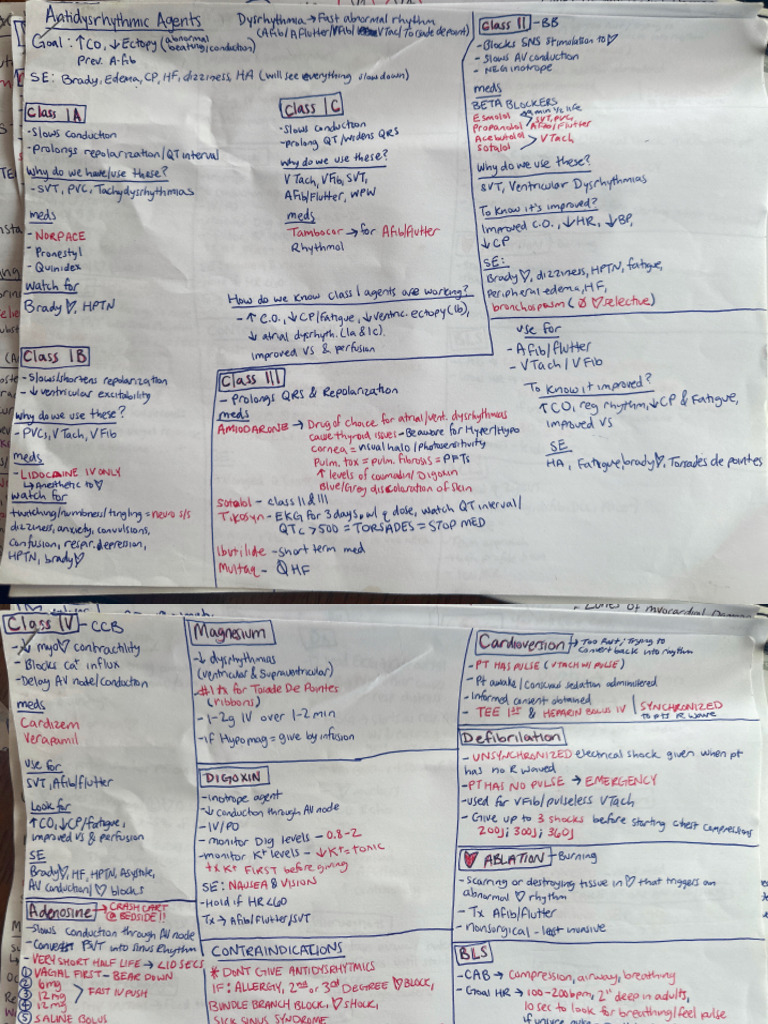 Antidysrhythmic Agents
Dysrhythmia → Fast abnormal rhythm
(Afib/AFlutter/VFib/VTac/Torsade de point)
Goal: ↑CO, ↓Ectopy (abnormal beating/conduction)
Prev. A-fib
SE: Brady, Edema, CP, HF, dizziness, HA (will see everything slow down)
Class IA
- Slows conduction
- Prolongs repolarization/QT interval
Why do we have/use these?
- SVT, PVC, Tachydysrhythmias
meds
- NORPACE
- Pronestyl
- Quinidex
Watch for
Brady ♡, HPTN
Class IC
- Slows conduction
- prolong QT/widens QRS
Why do we use these?
VTach, VFib, SVT,
AFib/Flutter, WPW
meds
Tambocor → for Afib/flutter
Rhythmol
How do we know class I agents are working?
- ↑ C.O., ↓CP/Fatigue, ↓ventric. ectopy (Ib),
↓ atrial dysrhyth. (Ia & Ic).
improved VS & perfusion
Class IB
- Slows/shortens repolarization
- ↓ ventricular excitability
Why do we use these?
- PVCs, VTach, VFib
meds
- LIDOCAINE IV ONLY
↳ Anesthetic to ♡
Watch for
twitching/numbness/tingling = neuro s/s
dizziness, anxiety, convulsions,
confusion, respir. depression,
HPTN, brady ♡
Class II - BB
- Blocks SNS stimulation to ♡
- Slows AV conduction
- NEG inotrope
meds
BETA BLOCKERS
Esmolol 9 min ½ life
Propanolol > SVT, PVC, Afib/Flutter
Acebutolol
Sotalol > VTach
Why do we use these?
SVT, Ventricular Dysrhythmias
To know it's improved?
Improved C.O., ↓HR, ↓BP,
↓CP
SE:
Brady ♡, dizziness, HPTN, fatigue,
Peripheral edema, HF,
bronchospasm (Ø ♡ selective)
Class III
- Prolongs QRS & Repolarization
meds
AMIODARONE → Drug of choice for atrial/vent. dysrhythmias
cause thyroid issues - Beaware for Hyper/Hypo
cornea = visual halo/photosensitivity
Pulm. tox = pulm. fibrosis = PFTs
↑ levels of coumadin/Digoxin
Blue/Grey discoloration of skin
Sotalol - class II & III
Tikosyn - EKG for 3 days, w/ q dose, watch QT interval/
QTc > 500 = TORSADES = STOP MED
Ibutilide - short term med
Multaq - Ø HF
use for
- AFib/flutter
- VTach/VFib
To know it improved?
↑CO, reg rhythm, ↓CP & Fatigue,
improved VS
SE
HA, Fatigue, brady ♡, Torsades de pointes
Class IV - CCB
- ↓ myo ♡ contractility
- Blocks Ca+ influx
- Delay AV node/conduction
meds
Cardizem
Verapamil
use for
SVT, Afib/flutter
Look for
↑CO, ↓CP/fatigue,
improved VS & perfusion
SE
Brady ♡, HF, HPTN, Asystole,
AV conduction/♡ blocks
Adenosine → CRASH CART @ BEDSIDE!!
- Slows conduction through AV node
- Convert PSVT into sinus Rhythm
- VERY SHORT HALF LIFE → <10 SECS
① VAGAL FIRST - BEAR DOWN
② 6mg
③ 12mg > FAST IV PUSH
④ 12mg
⑤ SALINE BOLUS
Magnesium
- ↓ dysrhythmias
(ventricular & Supraventricular)
#1 tx for Torsade De Pointes
(ribbons)
- 1-2g IV over 1-2 min
- if Hypomag = give by infusion
DIGOXIN
- inotrope agent
- ↓ conduction through AV node
- IV/PO
- monitor Dig levels - 0.8-2
- monitor K+ levels - ↓K+ = toxic
tx K+ FIRST before giving
SE: NAUSEA & VISION
- Hold if HR <60
Tx → Afib/Flutter/SVT
CONTRAINDICATIONS
* DONT GIVE ANTIDYSRHYTMICS
IF: ALLERGY, 2nd or 3rd DEGREE ♡ BLOCK,
BUNDLE BRANCH BLOCK, ♡ SHOCK,
SICK SINUS SYNDROME
Cardioversion → Too Fast; Trying to convert back into rhythm
- PT HAS PULSE (VTACH W/ PULSE)
- Pt awake/Conscious sedation administered
- Informed consent obtained
- TEE 1st & HEPARIN BOLUS IV | SYNCHRONIZED to pts R wave
Defibrilation
- UNSYNCHRONIZED electrical shock given when pt
has no R waved
- PT HAS NO PULSE → EMERGENCY
- used for VFib/pulseless VTach
- Give up to 3 shocks before starting chest compressions
200j; 300j; 360j
♥ ABLATION - Burning
- scarring or destroying tissue in ♡ that triggers an
abnormal ♡ rhythm
- Tx Afib/Flutter
- nonsurgical - least invasive
BLS
- CAB → Compression, airway, breathing
- Goal HR → 100-200bpm, 2" deep in adults,
10 sec to look for breathing/feel pulse